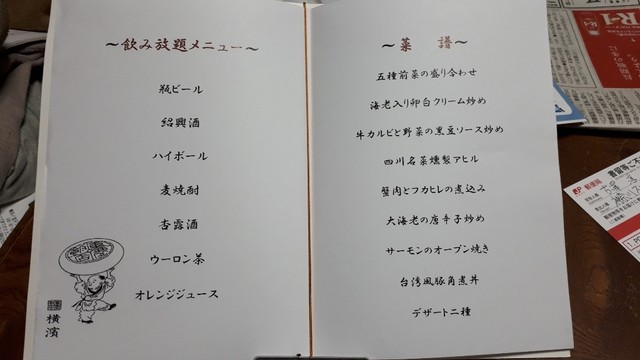 〜飲み放題メニュー〜
瓶ビール
紹興酒
ハイボール
麦焼酎
杏露酒
ウーロン茶
オレンジジュース
横濱
〜菜 譜〜
五種前菜の盛り合わせ
海老入り卵白クリーム炒め
牛カルビと野菜の黒豆ソース炒め
四川名菜燻製アヒル
蟹肉とフカヒレの煮込み
大海老の唐辛子炒め
サーモンのオーブン焼き
台湾風豚角煮丼
デザート二種
R-1